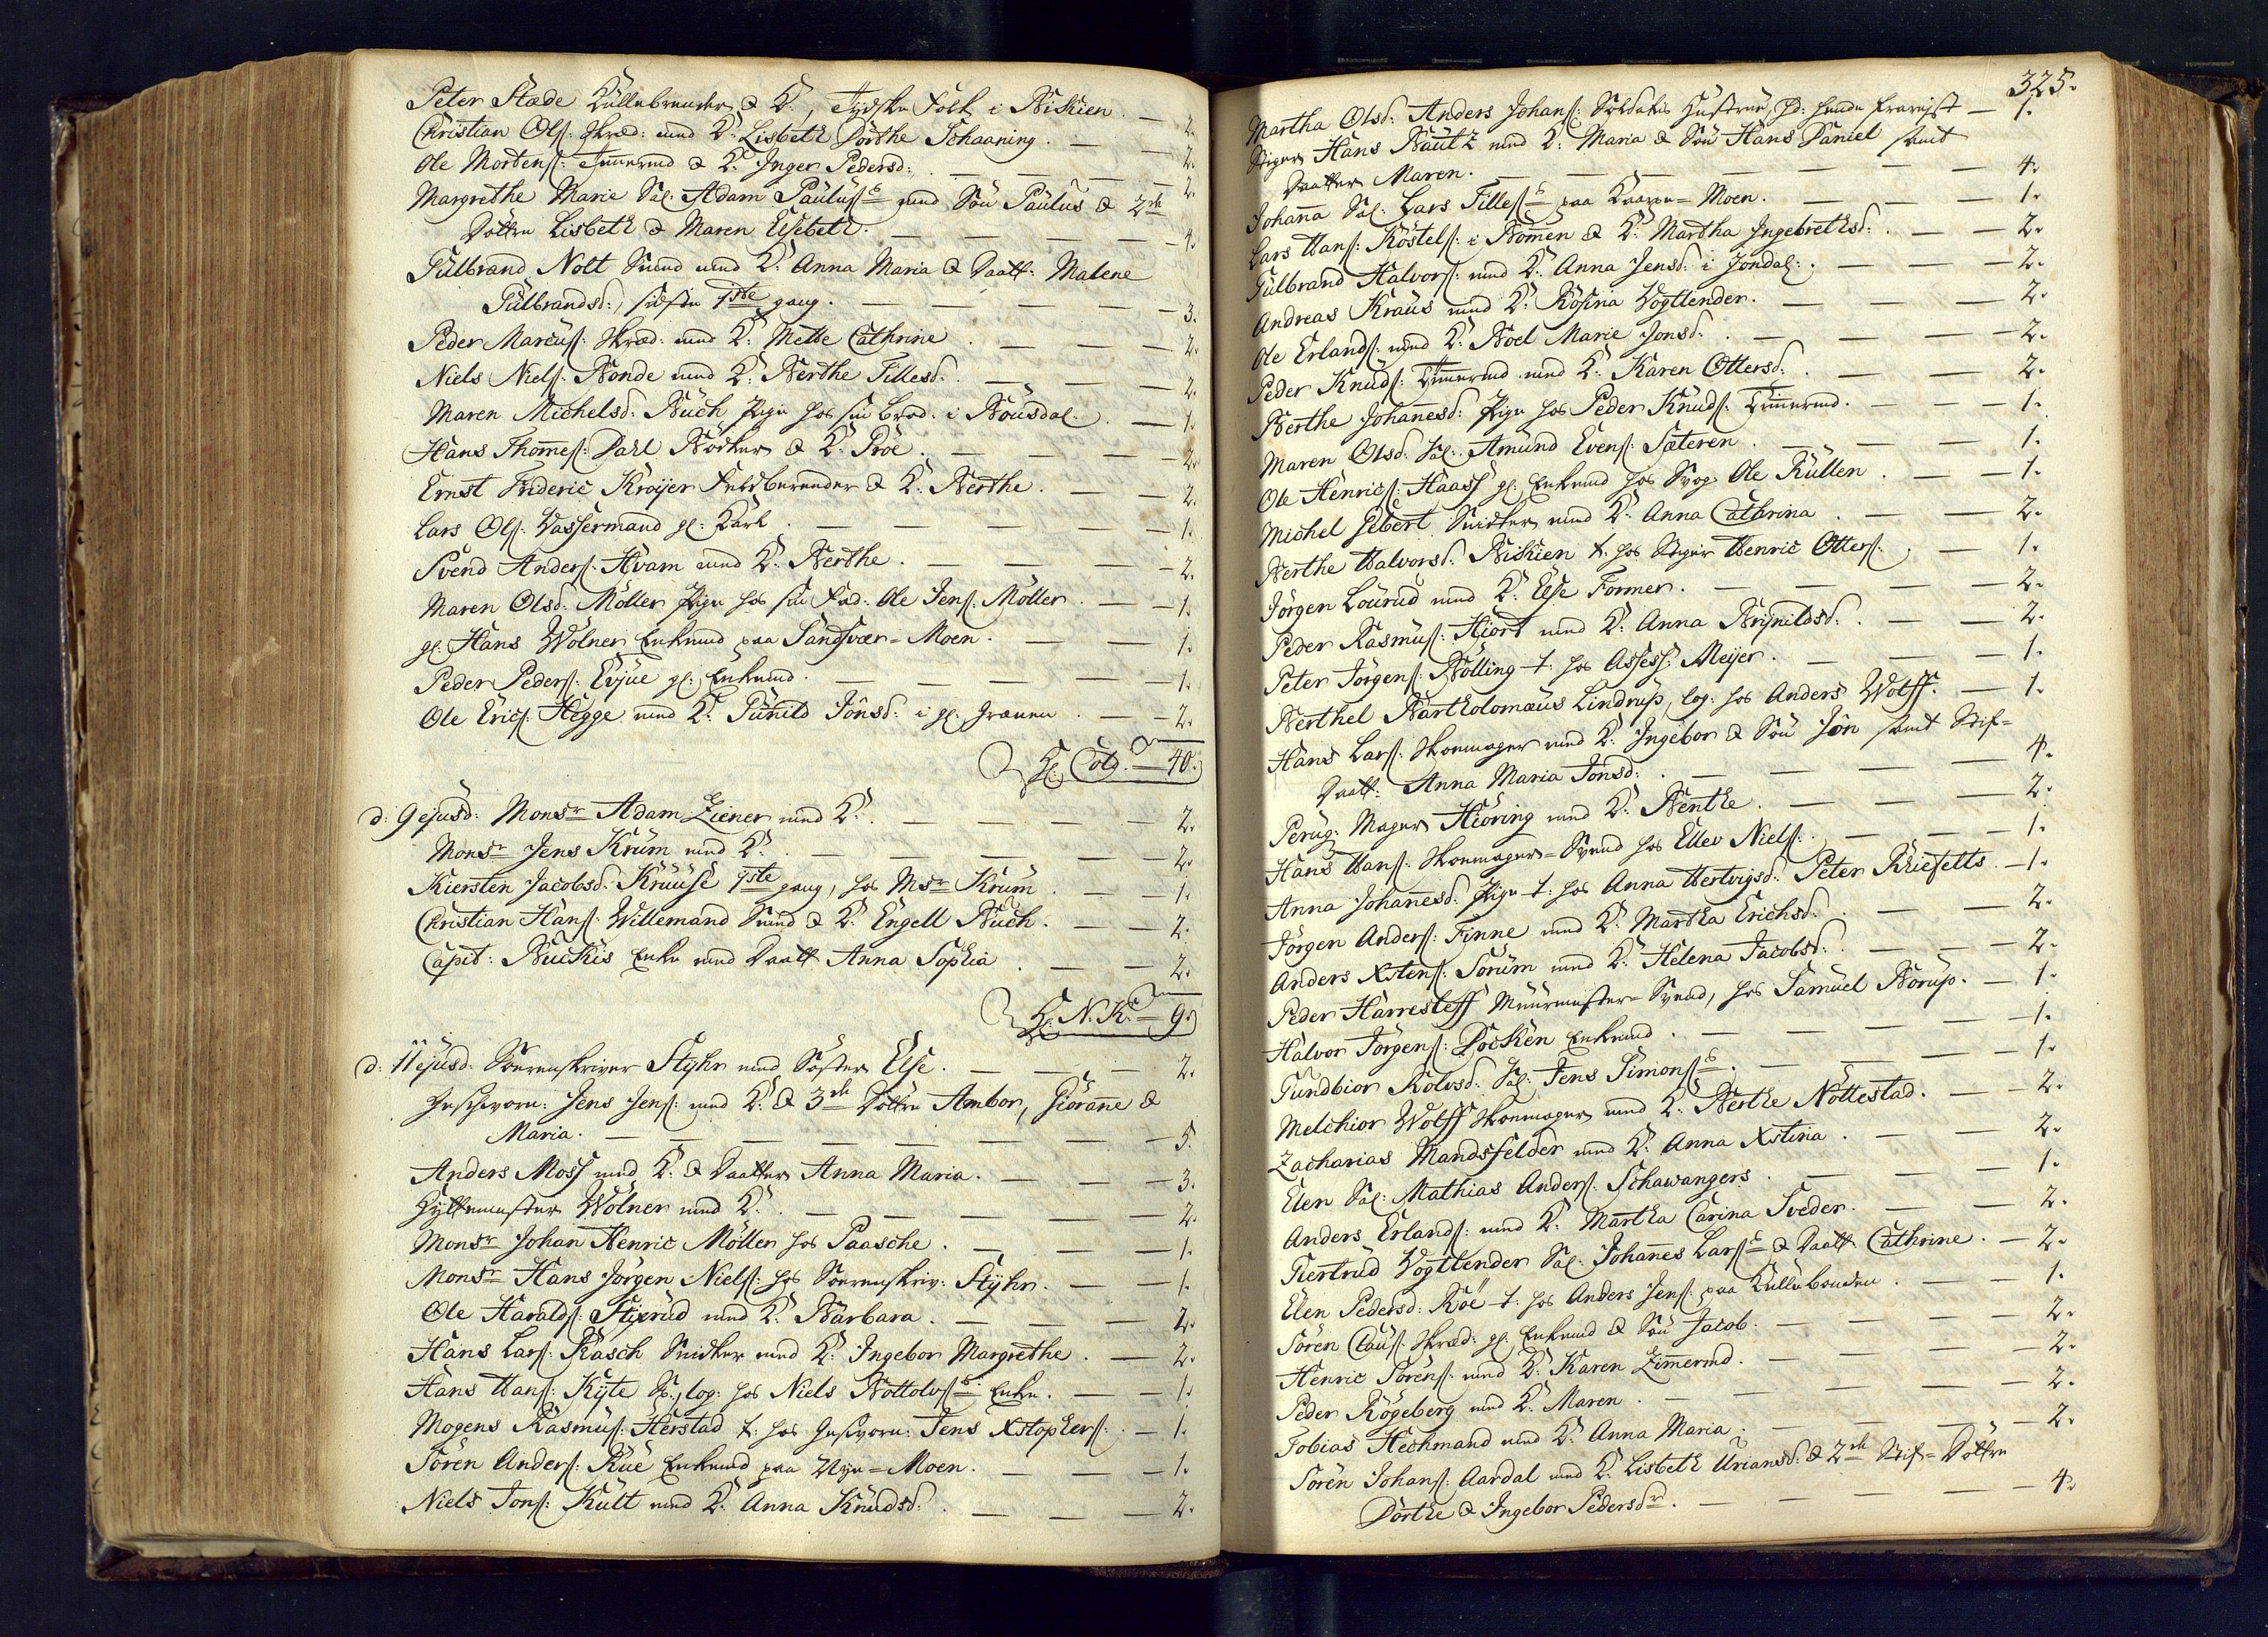 Peter Stæde Kullebrender & K:, Tydske Folk i Bikien. — 2.
Christian Ols: Skræd: med K: Lisbeth Dorthe Schaaning. — 2.
Ole Mortens: Tømermd & K: Inger Pedersd: — 2.
Margrethe Marie Sal: Adam Paulus&c med Søn Paulus & 2de
Døttre Lisbeth & Maren Elsebeth. — 4.
Gulbrand Nolt Smed med K: Anna Maria & Daatt: Malene
Gulbrandsd:, sidste 1ste gang. — 3.
Peder Marcus: Skræd: med K: Mette Cathrine — 2.
Niels Niels: Bonde med K: Berthe Tillesd: — 2.
Maren Michelsd: Buch Pige hos sin brod: i Bousdal. — 1.
Hans Thomes: Dahl Bødker & K: Roe. — 2.
Ernst Frideric Krøijer Feldbereder & K: Berthe. — 2.
Lars Ols: Vassermand gl: Karl. — 1.
Svend Anders: Hvam med K: Berthe. — 2.
Maren Olsd: Möller Pige hos sin Fad: Ole Jens: Möller. — 1.
gl: Hans Wölner Enkemd paa Sandsvær-Moen. — 1.
Peder Peders: Evjue gl: Enkemd. — 1.
Ole Erics: Hegge med K: Gunild Jonsd: i gl: Grænen. — 2.
H: Colg. — 40.
d: 9 ejusd: Monsr Adam Ziener med K: — 2.
Monsr Jens Krum med K: — 2.
Kiersten Jacobsd: Kruuse 1ste gang, hos Msr Krum. — 1.
Christian Hans: Willemand Smed & K: Engell Buch. — 2.
Capit: Buckis Enke med Daatt Anna Sophia. — 2.
H: N. K. — 9.
d: 11 ejusd: Sorenskriver Stÿhr med Søster Else. — 2.
Geschworn: Jens Jens: med K: & 3de Døttre Ambor, Giöranne &
Maria. — 5.
Anders Moss med K: & Daatter Anna Maria. — 3.
Hyttemester Wölner med K: — 2.
Monsr Johan Henric Möller hos Paasche. — 1.
Monsr Hans Jörgen Niels: hos Sorenskriv: Stÿhr. — 1.
Ole Haralds: Stixrud med K: Barbara. — 2.
Hans Lars: Rasch Snidker med K: Ingebor Margrethe. — 2.
Hans Hans: Kÿte S:, log: hos Niels Bottolvs&c Enke. — 1.
Mogens Rasmus: Herstad t: hos Gesvorn: Jens Xstophers: — 1.
Sören Anders: Rue Enkemd paa Nye-Moen. — 1.
Niels Jons: Kult med K: Anna Knudsd: — 2.
325.
Martha Olsd: Anders Johans: Soldatis Hustrue, — 1.
Stiger Hans Bautz med K: Maria & Søn Hans Daniel samt
Daatter Maren. — 4.
Johanna Sal: Lars Tilles&c paa Moen. — 1.
Lars Hans: Röstels: i Bommen & K: Martha Ingebrethsd: — 2.
Gulbrand Halvors: med K: Anna Jensd: i Jondal: — 2.
Andreas Kraus med K: Rosina Vogtlender. — 2.
Ole Erlands: med K: Boel Marie Jonsd: — 2.
Peder Knuds: Tömermd med K: Karen Ottersd: — 2.
Berthe Johannesd: Pige hos Peder Knuds: Tömermd. — 1.
Maren Olsd: Sal: Amund Evens: Sæteren. — 1.
Ole Henrics: Haass gl: Enkemd hos Svog: Ole Rullen. — 1.
Michel Sebert Snidker med K: Anna Cathrina. — 2.
Berthe Halvorsd: Bikien t: hos Stiger Henric Otters: — 1.
Jörgen Lourud med K: Else Former. — 2.
Peder Rasmus: Hjort med K: Anna Brynildsd: — 2.
Peter Jörgens: Bölling t: hos Assess: Meÿer. — 1.
Berthel Bartholomæus Lindrup, log: hos Anders Wolff. — 1.
Hans Lars: Skoemager med K: Ingebor & Søn Jon samt Stif-
Daatt: Anna Maria Jonsd: — 4.
Peruq: Mager Hiöring med K: Benthe. — 2.
Hans Hans: Skoemager-Svend hos Ellev Niels: — 1.
Anna Johannesd: Pige t: hos Anna Hertvigsd: Peter Kiefetts. — 1.
Jörgen Anders: Finne med K: Martha Erichsd: — 2.
Anders Xstens: Sorum med K: Helena Jacobsd: — 2.
Peder Harresleff Muurmester-Svend, hos Samuel Borup. — 1.
Halvor Jörgens: Docken Enkemd. — 1.
Gundbior Rolvsd: Sal: Jens Simons&c. — 1.
Melchior Wolff Skoemager med K: Berthe Nöttestad. — 2.
Zacharias Mandsfelder med K: Anna Xstina. — 2.
Elen Sal: Mathias Anders: Schawangers. — 1.
Anders Erlands: med K: Martha Carina Sveder. — 2.
Giertrud Vogtlender Sal: Johannes Lars&c & Daatt: Cathrine. — 2.
Elen Pedersd: Röe t: hos Anders Jens: paa Kullebonden. — 1.
Sören Claus: Skræd: gl: Enkemd & Søn Jacob. — 2.
Henric Sörens: med K: Karen Zimermd. — 2.
Peder Rögeberg med K: Maren. — 2.
Tobias Hechmand med K: Anna Maria. — 2.
Sören Johans: Aardal med K: Lisbeth Uriansd: & 2de Stif-Døttre
Dorthe & Ingebor Pedersdr. — 4.